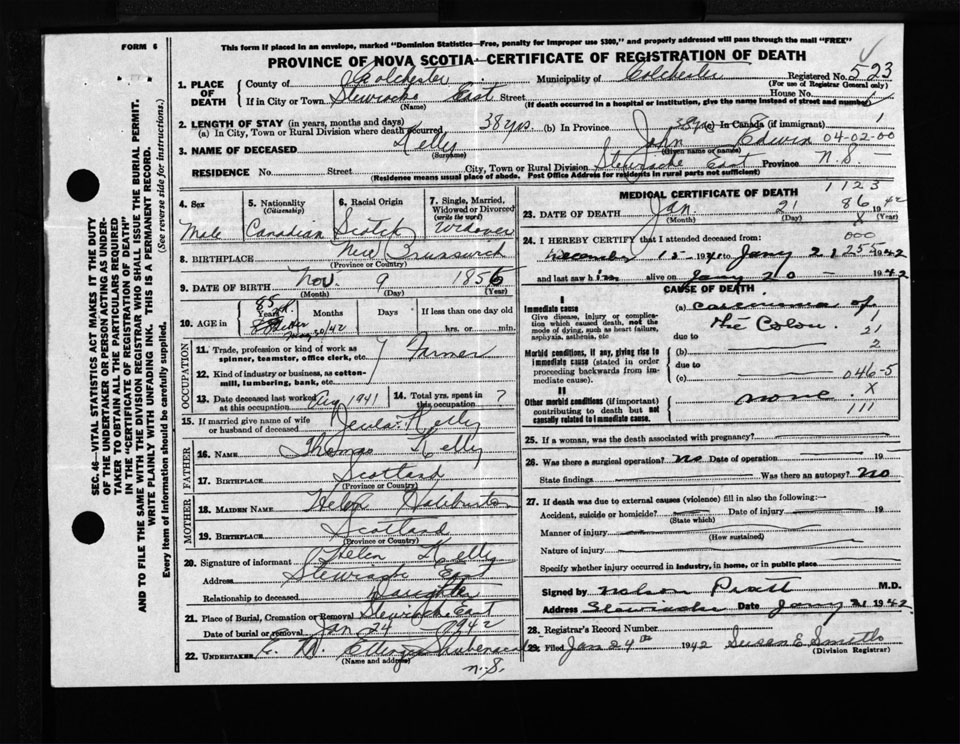 FORM 6
This form if placed in an envelope, marked "Dominion Statistics—Free, penalty for improper use $300," and properly addressed will pass through the mail "FREE"
PROVINCE OF NOVA SCOTIA—CERTIFICATE OF REGISTRATION OF DEATH
1. PLACE OF DEATH County of Colchester Municipality of Colchester Registered No. 523
(For use of Registrar General only)
If in City or Town Stewiacke East Street House No.
(Name) (If death occurred in a hospital or institution, give the name instead of street and number)
2. LENGTH OF STAY (in years, months and days)
(a) In City, Town or Rural Division where death occurred 38 yrs (b) In Province 38 yrs (c) In Canada (if immigrant) 1
3. NAME OF DECEASED Kelly John Edwin 04-02-00
(Surname) (Given name or names)
RESIDENCE No. Street City, Town or Rural Division Stewiacke East Province N.S.
(Residence means usual place of abode. Post Office Address for residents in rural parts not sufficient)
4. Sex Male
5. Nationality (Citizenship) Canadian
6. Racial Origin Scotch
7. Single, Married, Widowed or Divorced (write the word) Widower
8. BIRTHPLACE New Brunswick
(Province or Country)
9. DATE OF BIRTH Nov. 9 1856
(Month) (Day) (Year)
10. AGE in 85 Years Months Days If less than one day old
hrs. or min.
OCCUPATION
11. Trade, profession or kind of work as spinner, teamster, office clerk, etc. Farmer
12. Kind of industry or business, as cotton-mill, lumbering, bank, etc.
13. Date deceased last worked at this occupation Aug 1941 14. Total yrs. spent in this occupation ?
15. If married give name of wife or husband of deceased Kelly
FATHER
16. NAME Thomas Kelly
17. BIRTHPLACE Scotland
(Province or Country)
MOTHER
18. MAIDEN NAME Helen Haliburton
19. BIRTHPLACE Scotland
(Province or Country)
20. Signature of informant Helen Kelly
Address Stewiacke East
Relationship to deceased Daughter
21. Place of Burial, Cremation or Removal Stewiacke East
Date of burial or removal Jan 24 1942
22. UNDERTAKER E. W. Shubenacadie
(Name and address) N.S.
MEDICAL CERTIFICATE OF DEATH
1123
23. DATE OF DEATH Jan 21 86 1942
(Month) (Day) (Year)
000
24. I HEREBY CERTIFY that I attended deceased from:
December 15 1941 to Jany 21 255 1942
and last saw him alive on Jany 20 1942
CAUSE OF DEATH
I
Immediate cause (a) carcinoma of
Give disease, injury or complication which caused death, not the mode of dying, such as heart failure, asphyxia, asthenia, etc the Colon. 1
due to 21
Morbid conditions, if any, giving rise to immediate cause (stated in order proceeding backwards from immediate cause). (b) 2
due to
(c) 046-5
II
Other morbid conditions (if important) contributing to death but not causally related to immediate cause. none X
111
25. If a woman, was the death associated with pregnancy?
26. Was there a surgical operation? No Date of operation 19
State findings Was there an autopsy? No
27. If death was due to external causes (violence) fill in also the following:—
Accident, suicide or homicide? Date of injury 19
(State which)
Manner of injury
(How sustained)
Nature of injury
Specify whether injury occurred in industry, in home, or in public place
Signed by Nelson Pratt M.D.
Address Stewiacke Date Jany 21 1942
28. Registrar's Record Number
29. Filed Jan 24th 1942 Susan E Smith
(Division Registrar)
SEC. 46—VITAL STATISTICS ACT MAKES IT THE DUTY
OF THE UNDERTAKER OR PERSON ACTING AS UNDER-
TAKER TO OBTAIN ALL THE PARTICULARS REQUIRED
IN THE "CERTIFICATE OF REGISTRATION OF DEATH"
AND TO FILE THE SAME WITH THE DIVISION REGISTRAR WHO SHALL ISSUE THE BURIAL PERMIT.
WRITE PLAINLY WITH UNFADING INK. THIS IS A PERMANENT RECORD.
Every item of information should be carefully supplied. (See reverse side for instructions.)